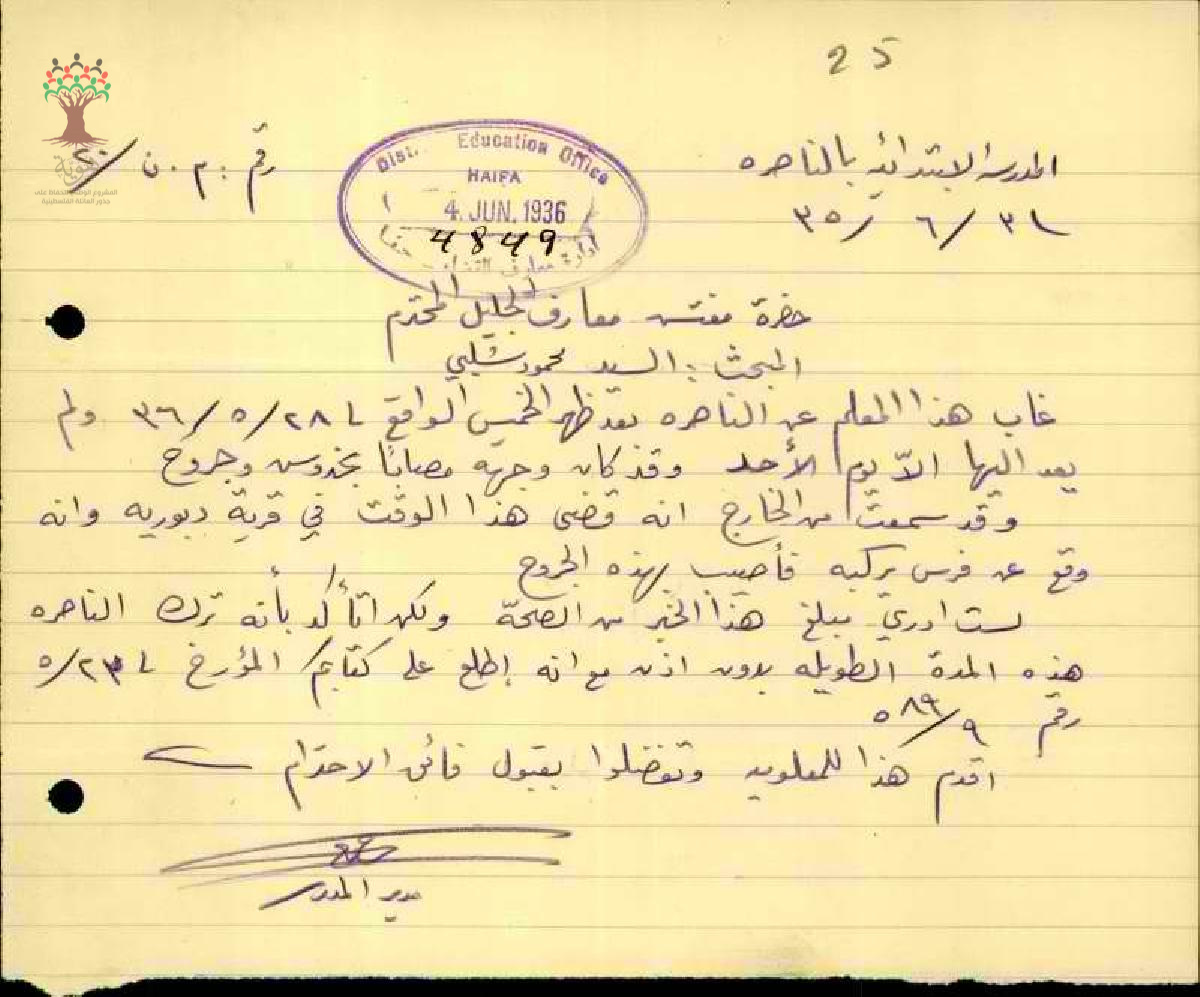 25
المدرسة الابتدائية بالناصره
رقم: م. ن /٢٠
District Education Office
HAIFA
4. JUN. 1936
4849
ادارة معارف
حيفا
حضرة مفتش معارف الجليل المحترم
المبحث: السيد محمود شلبي
غاب هذا المعلم عن الناصره بعد ظهر الخميس الواقع في ٢٨/٥/٣٦ ولم
يعد اليها الاّ يوم الأحد وقد كان وجهه مصابًا بخدوش وجروح
وقد سمعت من الخارج انه قضى هذا الوقت في قرية دبوريه وانه
وقع عن فرس يركبه فأصيب بهذه الجروح
لست ادري مبلغ هذا الخبر من الصحّة ولكن اتأكد بأنه ترك الناصره
هذه المدة الطويله بدون اذن مع انه إطلع على كتابكم المؤرخ في ٢٣/٥
رقم ٥٨٩/٩
اقدم هذا للمعلومية وتفضلوا بقبول فائق الاحترام
مدير المدرسة
المشروع الوطني للحفاظ على
جذور العائلة الفلسطينية